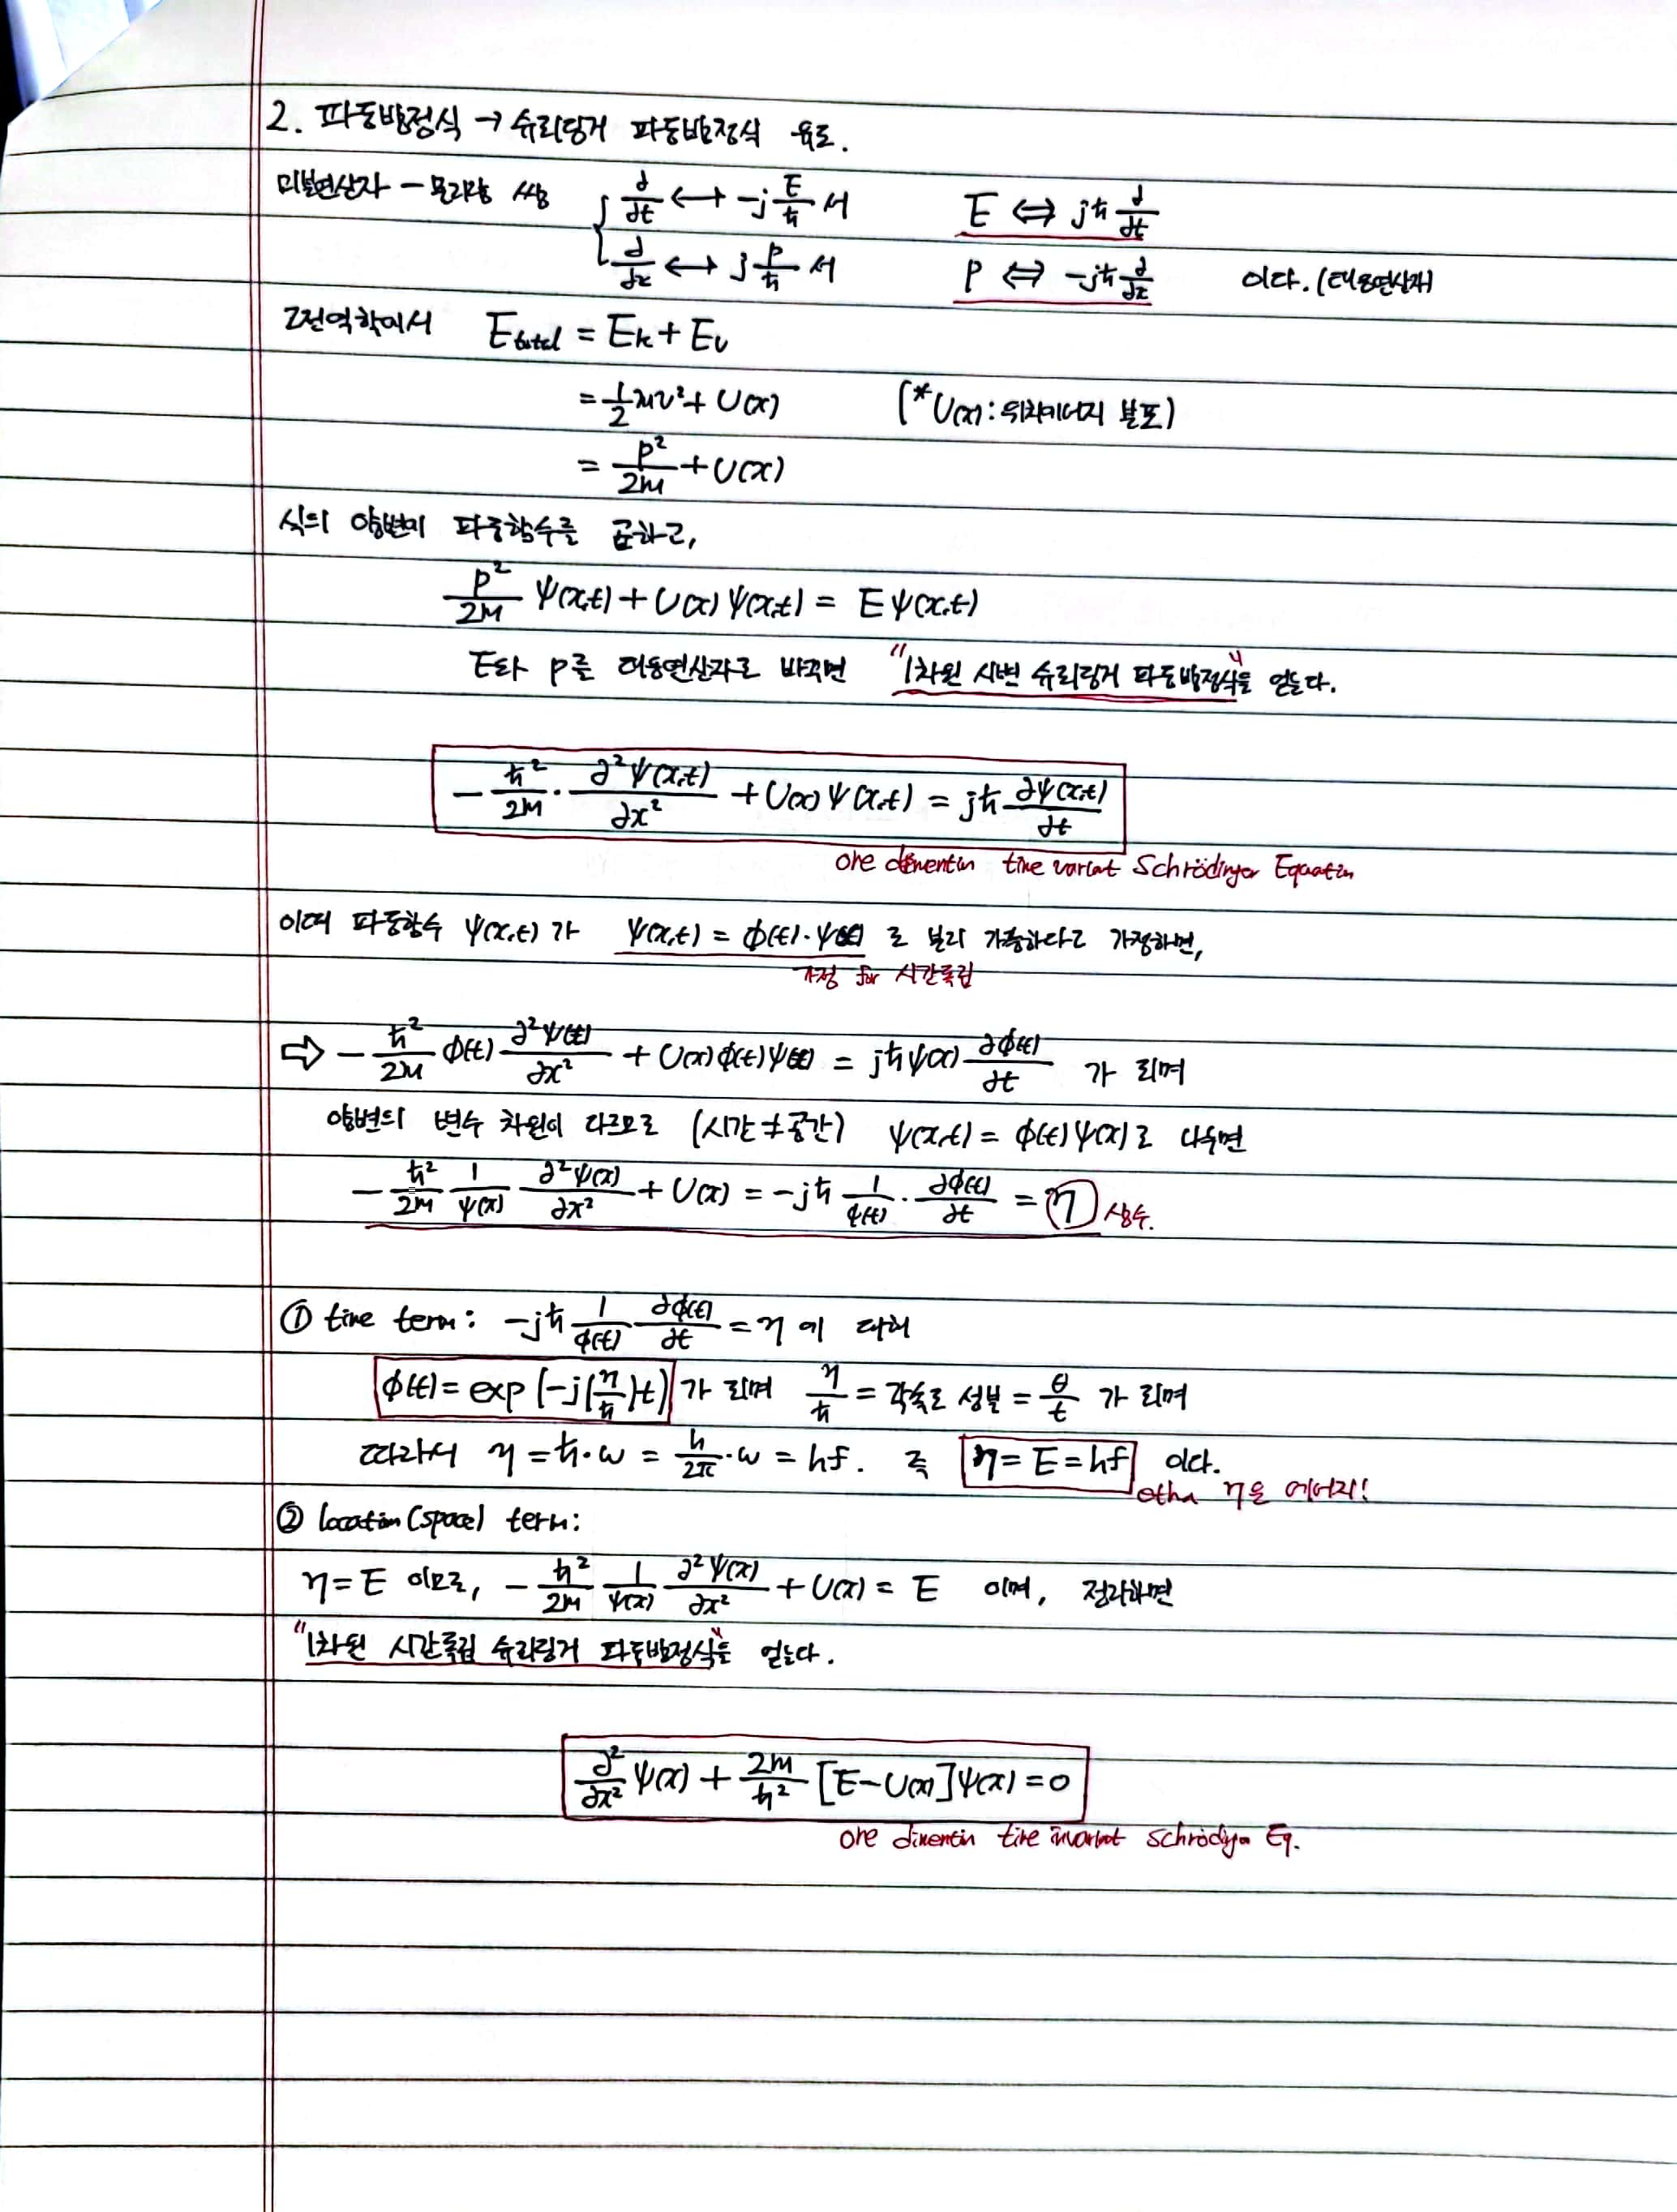 2. 파동방정식 → 슈뢰딩거 파동방정식 유도.
미분연산자 - 물리량 쌍 { ∂/∂t ⟷ -j E/ħ 서 E ⟺ jħ ∂/∂t
∂/∂x ⟷ j p/ħ 서 p ⟺ -jħ ∂/∂x 이다. (대응연산자)
고전역학에서 E_total = E_k + E_U
= 1/2 mv² + U(x) (*U(x): 위치에너지 분포)
= p²/2m + U(x)
식의 양변에 파동함수를 곱하고,
p²/2m ψ(x,t) + U(x) ψ(x,t) = E ψ(x,t)
E와 p를 대응연산자로 바꾸면 "1차원 시변 슈뢰딩거 파동방정식"을 얻는다.
-ħ²/2m · ∂²ψ(x,t)/∂x² + U(x) ψ(x,t) = jħ ∂ψ(x,t)/∂t
one dimentin time variant Schrödinger Equatin
이때 파동함수 ψ(x,t)가 ψ(x,t) = ϕ(t)·ψ(x)로 분리 가능하다고 가정하면,
가정 for 시간독립
⇨ -ħ²/2m ϕ(t) ∂²ψ(x)/∂x² + U(x)ϕ(t)ψ(x) = jħψ(x) ∂ϕ(t)/∂t 가 되며
양변의 변수 차원이 다르므로 (시간≠공간) ψ(x,t) = ϕ(t)ψ(x)로 나누면
-ħ²/2m 1/ψ(x) ∂²ψ(x)/∂x² + U(x) = -jħ 1/ϕ(t) · ∂ϕ(t)/∂t = η 상수.
① time term: -jħ 1/ϕ(t) ∂ϕ(t)/∂t = η 에 대해
ϕ(t) = exp(-j(η/ħ)t) 가 되며 η/ħ = 각속도 성분 = θ/t 가 되며
따라서 η = ħ·ω = h/2π·ω = hf. 즉 η = E = hf 이다.
η은 에너지!
② location (space) term:
η = E 이므로, -ħ²/2m 1/ψ(x) ∂²ψ(x)/∂x² + U(x) = E 이며, 정리하면
"1차원 시간독립 슈뢰딩거 파동방정식"을 얻는다.
∂²/∂x² ψ(x) + 2m/ħ² [E-U(x)]ψ(x) = 0
one dimentin time invariant Schrödinger Eq.